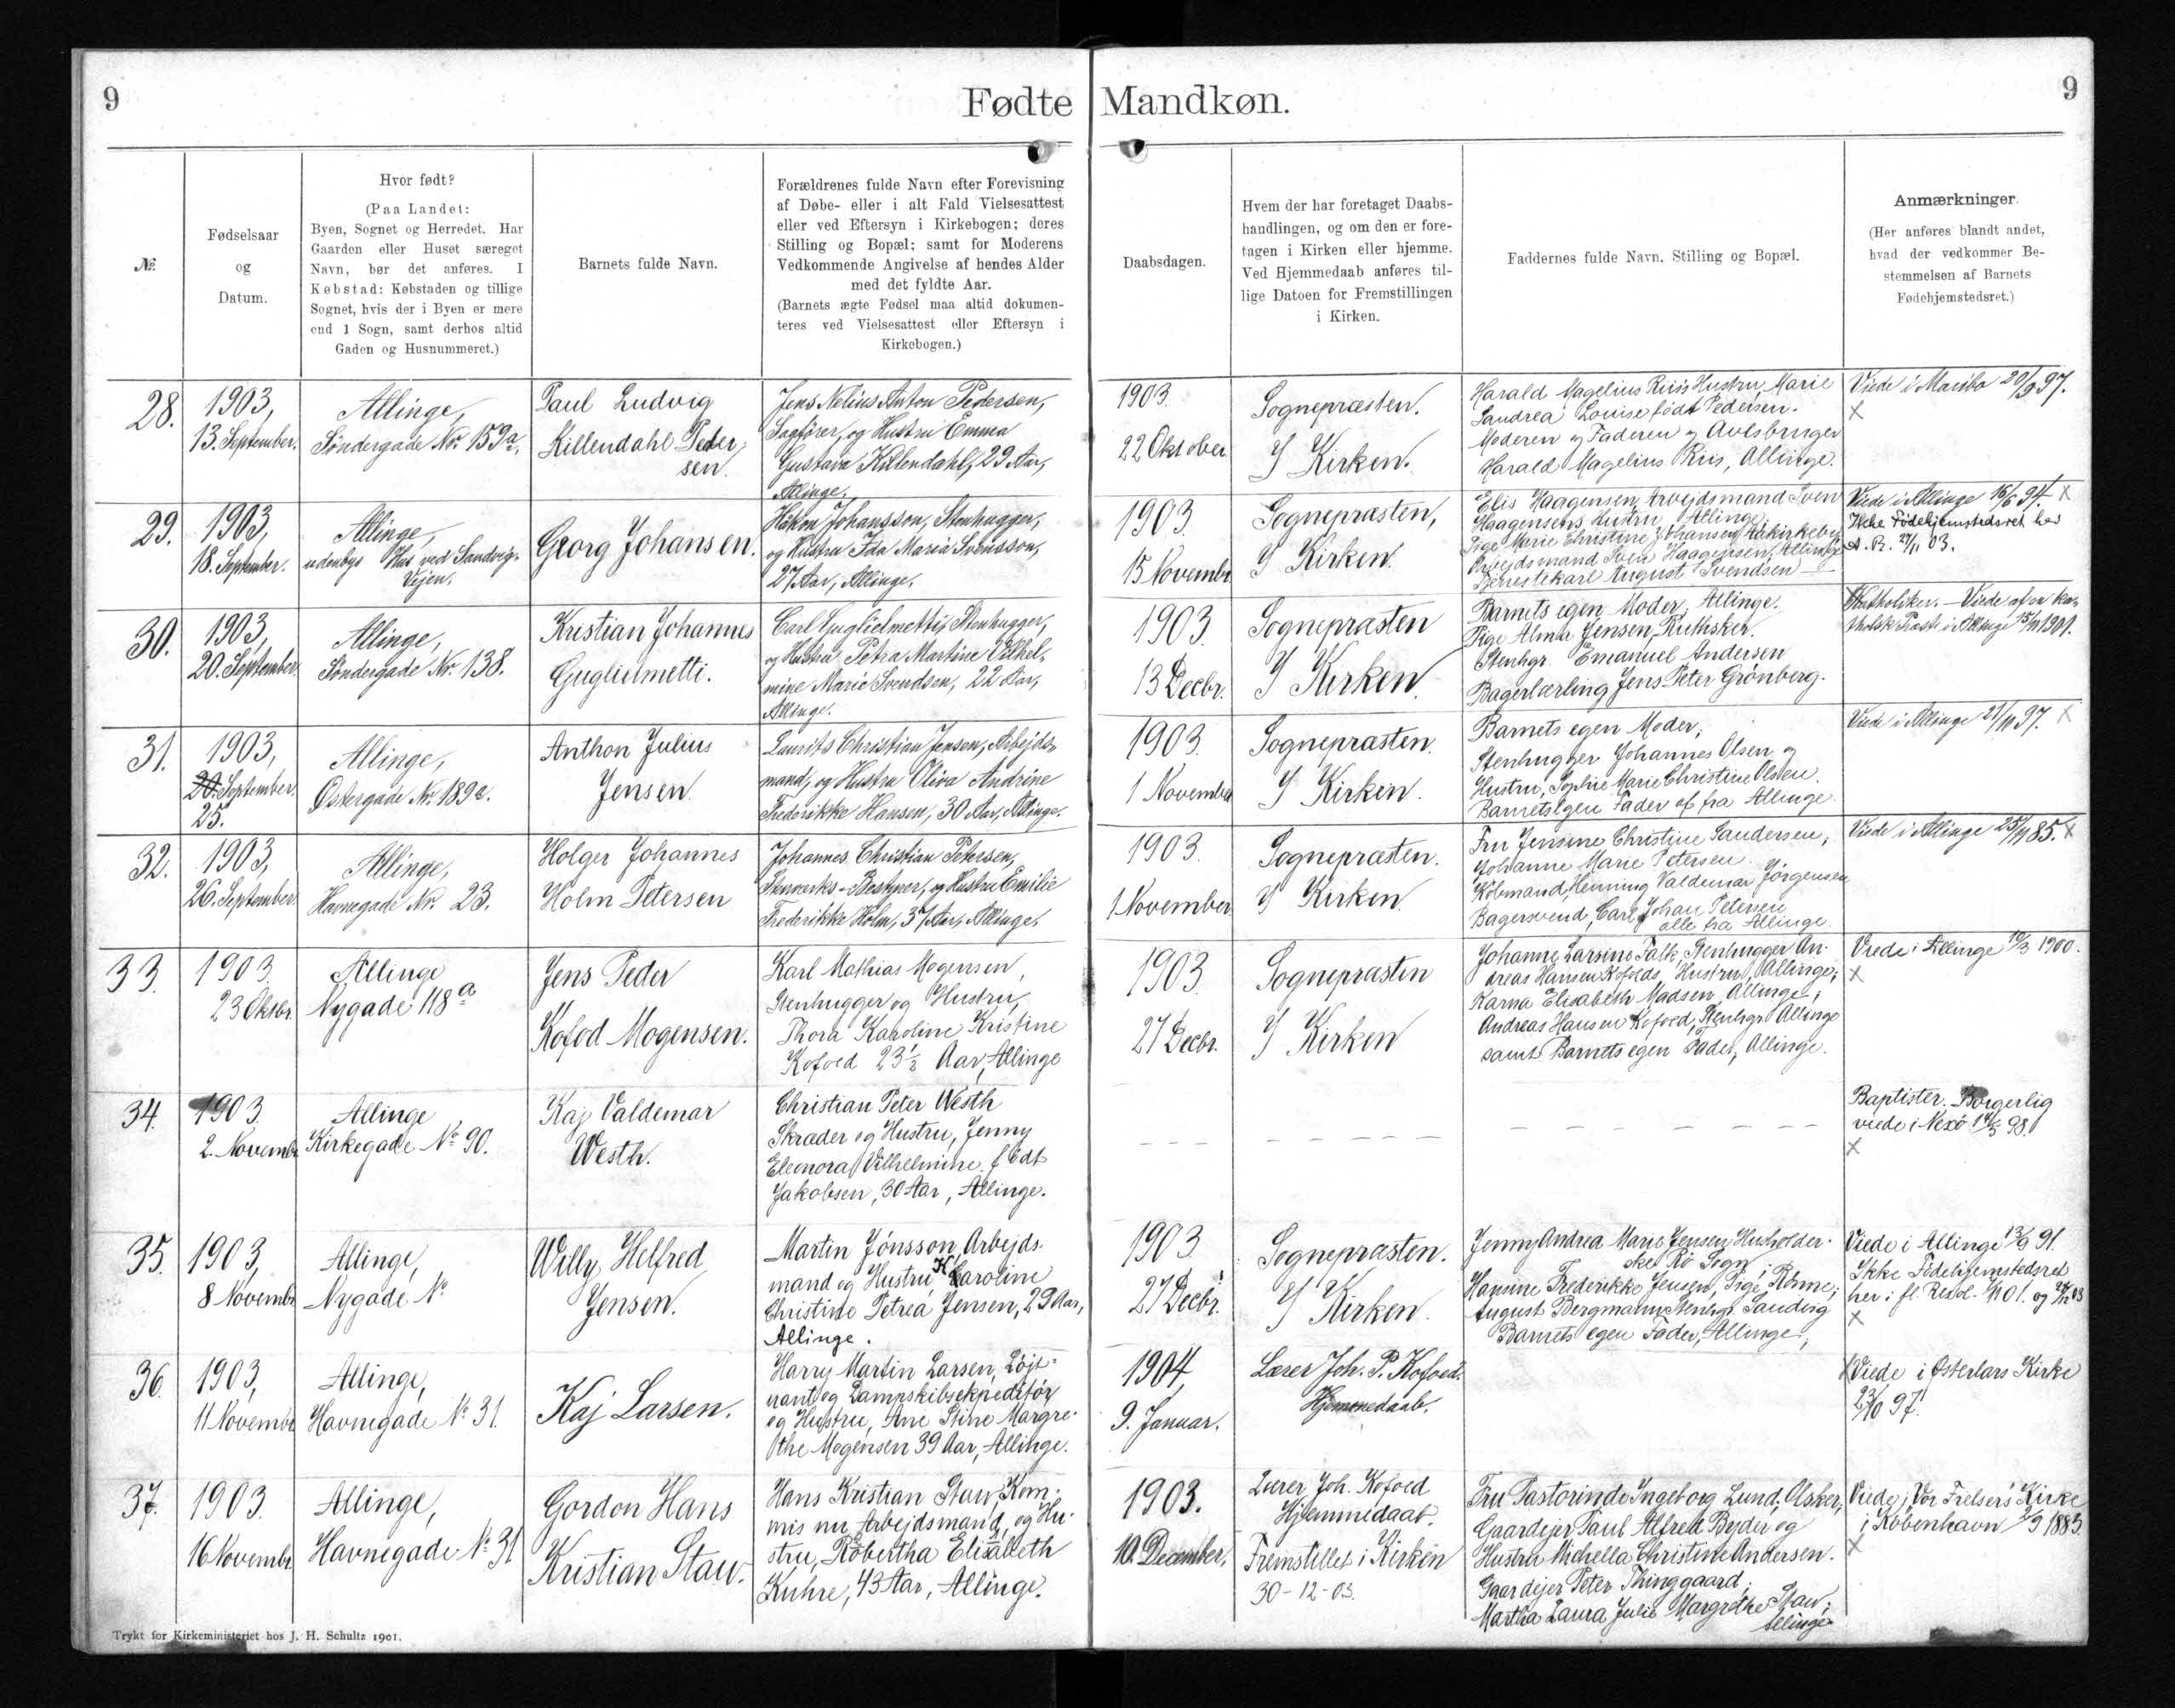 9
Fødte Mandkøn.
9
№.
Fødselsaar
og
Datum.
Hvor født?
(Paa Landet:
Byen, Sognet og Herredet. Har
Gaarden eller Huset særeget
Navn, bør det anføres. I
Købstad: Købstaden og tillige
Sognet, hvis der i Byen er mere
end 1 Sogn, samt derhos altid
Gaden og Husnummeret.)
Barnets fulde Navn.
Forældrenes fulde Navn efter Forevisning
af Døbe- eller i alt Fald Vielsesattest
eller ved Eftersyn i Kirkebogen; deres
Stilling og Bopæl; samt for Moderens
Vedkommende Angivelse af hendes Alder
med det fyldte Aar.
(Barnets ægte Fødsel maa altid dokumen-
teres ved Vielsesattest eller Eftersyn i
Kirkebogen.)
Daabsdagen.
Hvem der har foretaget Daabs-
handlingen, og om den er fore-
tagen i Kirken eller hjemme.
Ved Hjemmedaab anføres til-
lige Datoen for Fremstillingen
i Kirken.
Faddernes fulde Navn, Stilling og Bopæl.
Anmærkninger.
(Her anføres blandt andet,
hvad der vedkommer Be-
stemmelsen af Barnets
Fødehjemstedsret.)
28.
1903,
13. September.
Allinge,
Søndergade No. 159a.
Paul Ludvig
Killendahl Peder-
sen.
Jens Nelius Anton Pedersen,
Sagfører, og Hustru Emma
Gustava Killendahl, 29 Aar,
Allinge.
1903.
22 Oktober
Sognepræsten.
I Kirken.
Harald Magelius Riis Hustru, Marie
Sandrea Louise født Pedersen.
Moderen og Faderen og Avlsbruger
Harald Magelius Riis, Allinge.
Viede i Maribo 20/9 97.
×
29.
1903,
18. September.
Allinge,
udenbys Hus ved Sandvig-
Vejen.
Georg Johansen.
Håkon Johansson, Stenhugger,
og Hustru Ida Maria Svensson,
27 Aar, Allinge.
1903.
15 Novembr
Sognepræsten,
I Kirken.
Elis Haagensen, Arbejdsmand Sven
Haagensens Hustru, Allinge;
Pige Marie Christine Johansen, Aakirkeby
Arbejdsmand Sven Haagensen, Allinge
Tjenestekarl August Svendsen —
Viede i Allinge 16/6 94. ×
Ikke Fødehjemstedsret her
A. R. 27/11 03.
30.
1903,
20. September.
Allinge,
Søndergade No. 138.
Kristian Johannes
Guglielmetti.
Carl Guglielmetti, Stenhugger,
og Hustru Petra Martine Vilhel-
mine Marie Svendsen, 22 Aar,
Allinge.
1903.
13 Decbr.
Sognepræsten
I Kirken.
Barnets egen Moder, Allinge.
Pige Alma Jensen, Ruthsker.
Stenhgr. Emanuel Andersen
Bagerlærling Jens Peter Grønberg.
Katholiker. — Viede af en ka-
tholsk Præst i Allinge 15/11 1901.
31.
1903,
20. September.
25.
Allinge,
Østergade No. 189a.
Anthon Julius
Jensen.
Laurits Christian Jensen, Arbejds-
mand, og Hustru Oliva Andrine
Frederikke Hansen, 30 Aar, Allinge.
1903.
1 November
Sognepræsten.
I Kirken.
Barnets egen Moder;
Stenhugger Johannes Olsen og
Hustru, Sophie Marie Christine Olsen.
Barnets egen Fader af fra Allinge.
Viede i Allinge 21/11 97. ×
32.
1903,
26. September.
Allinge,
Havnegade No. 23.
Holger Johannes
Holm Petersen
Johannes Christian Petersen,
og Hustru Emilie
Frederikke Holm, 37 Aar, Allinge.
1903.
1 November
Sognepræsten.
I Kirken.
Fru Jensine Christine Sandersen,
Johanne Marie Petersen.
Købmand, Henning Valdemar Jørgensen
Bagersvend, Carl Johan Petersen
alle fra Allinge.
Viede i Allinge 25/11 85. ×
33.
1903.
23 Oktbr.
Allinge
Nygade 118a
Jens Peder
Kofod Mogensen.
Karl Mathias Mogensen,
Stenhugger og Hustru,
Thora Karoline Kristine
Kofoed 23½ Aar, Allinge
1903.
27 Decbr.
Sognepræsten
I Kirken
Johanne Larsine Falk, Stenhugger An-
dreas Hansen Kofoeds Hustru, Allinge;
Karna Elisabeth Madsen, Allinge;
Andreas Hansen Kofoed, Stenhgr Allinge
samt Barnets egen Fader, Allinge.
Viede i Allinge 10/3 1900.
×
34.
1903.
2. Novembr.
Allinge
Kirkegade No 90.
Kaj Valdemar
Westh.
Christian Peter Westh
Skræder og Hustru, Jenny
Eleonora Vilhelmine, født
Jakobsen, 30 Aar, Allinge.
Baptister. Borgerlig
viede i Nexø 14/5 98.
×
35.
1903,
8 Novembr.
Allinge,
Nygade No
Willy Helfred
Jensen.
Martin Jönsson, Arbejds-
mand og Hustru, Karoline
Christine Petrea Jensen, 29 Aar,
Allinge.
1903
27 Decbr.
Sognepræsten.
I Kirken.
Jenny Andrea Marie Jensen, Husholder-
ske, Rø Sogn;
Hansine Frederikke Jensen, Pige, Rønne;
August Bergmann, Stenhgr. Sandvig
Barnets egen Fader, Allinge;
Viede i Allinge 13/9 91.
Ikke Fødehjemstedsret
×
36.
1903,
11 Novembr
Allinge,
Havnegade No 31.
Kaj Larsen.
Harry Martin Larsen, Løjt-
nant og Dampskibsekpeditør,
og Hustru, Ane Stine Margre-
the Mogensen 39 Aar, Allinge.
1904,
9. Januar.
Lærer Joh. P. Kofoed.
Hjemmedaab.
Viede i Østerlars Kirke
23/10 97.
37.
1903.
16 Novembr.
Allinge,
Havnegade No 31
Gordon Hans
Kristian Staw.
Hans Kristian Staw, Kom-
mis nu Arbejdsmand, og Hu-
stru, Robertha Elisabeth
Kuhre, 43 Aar, Allinge.
1903.
10. December.
Lærer Joh. Kofoed
Hjemmedaab.
Fremstillet i Kirken
30-12-03.
Fru Pastorinde Ingeborg Lund, Olsker,
Gaardejer Paul Alfred Byder og
Hustru Michella Christine Andersen.
Gaardejer Peter Thinggaard;
Martha Laura Julie Margrethe Staw;
Allinge
Viede i Vor Frelsers Kirke
i København 1883.
×
Trykt for Kirkeministeriet hos J. H. Schultz 1901.